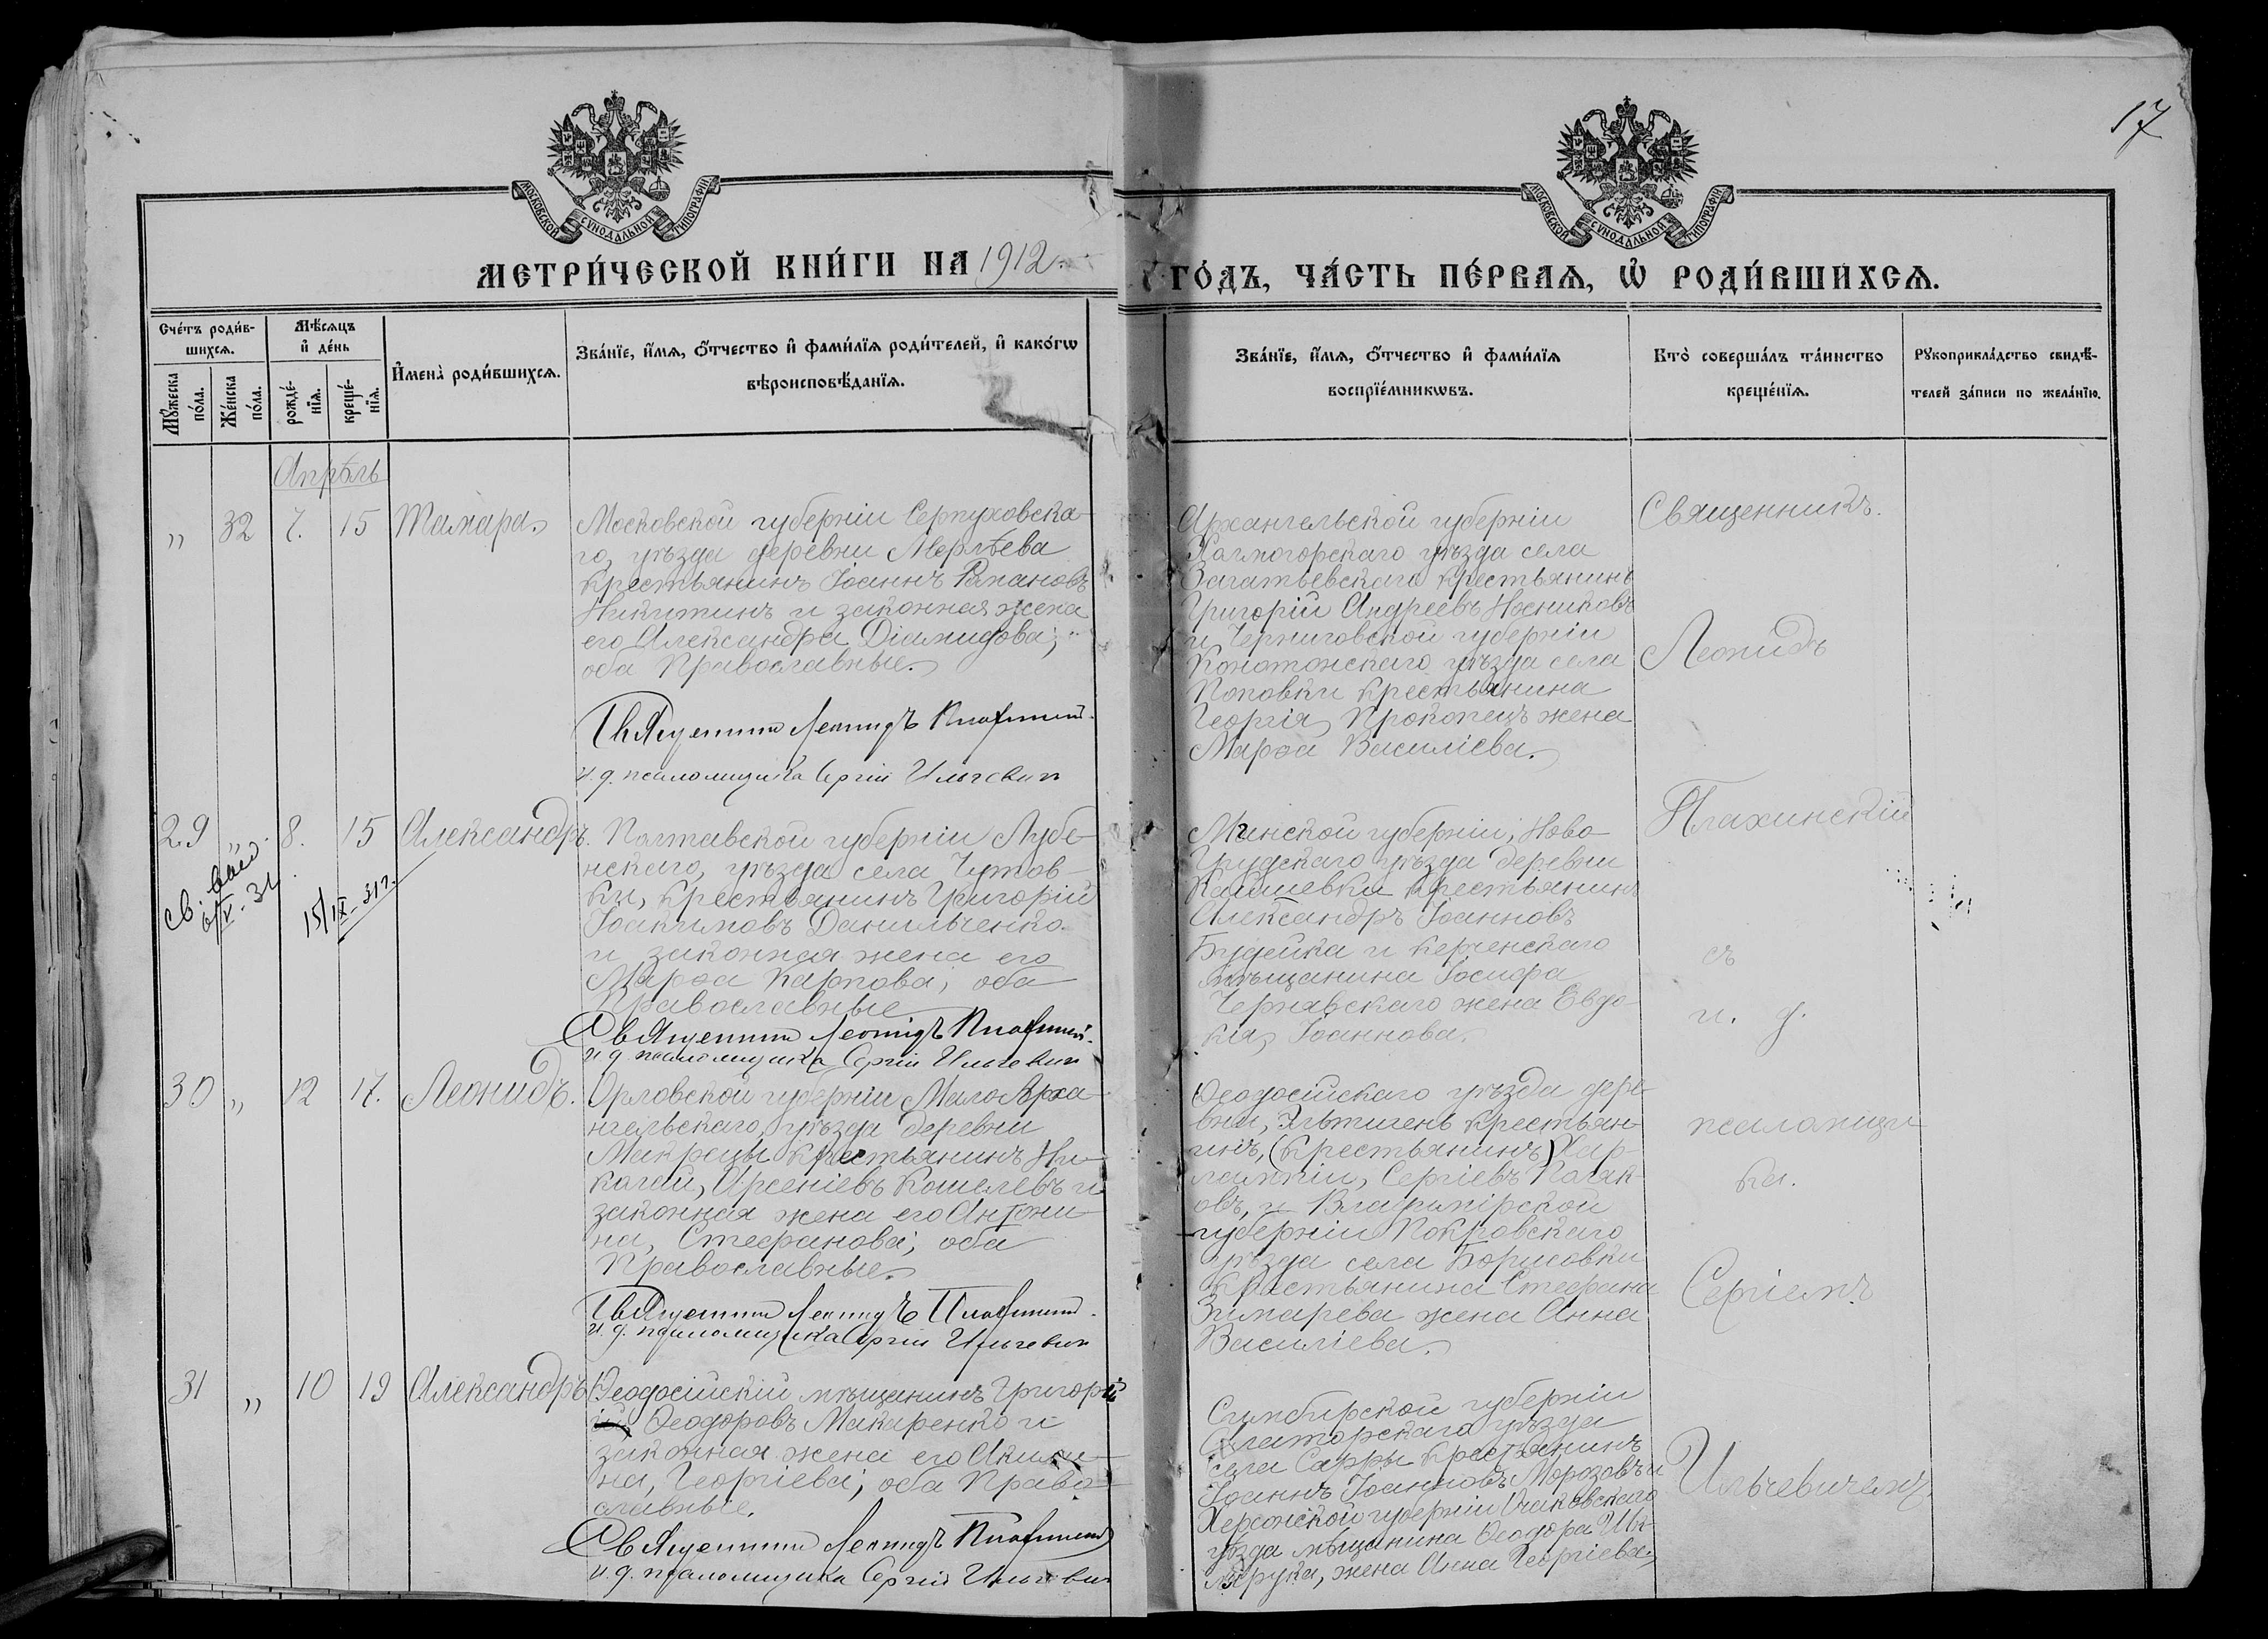 17
МОСКОВСКОЙ СѴНОДАЛЬНОЙ ТИПОГРАФІИ
МОСКОВСКОЙ СѴНОДАЛЬНОЙ ТИПОГРАФІИ
МЕТРИ́ЧЕСКОЙ КНИ́ГИ НА 1912
ГО́ДЪ, ЧА́СТЬ ПЕ́РВАѦ, Ѡ҆ РОДИ́ВШИХСѦ.
Сче́тъ роди́в-
шихсѧ.
Мꙋ́жеска по́ла.
Же́нска по́ла.
Мѣ́сѧцъ
и҆ де́нь
рожде́-
нїѧ.
креще́-
нїѧ.
И҆мена̀ роди́вшихсѧ.
Зва́нїе, и҆́мѧ, ѻ҆́тчество и҆ фами́лїѧ роди́телей, и҆ како́гѡ
вѣроисповѣ́данїѧ.
Зва́нїе, и҆́мѧ, ѻ҆́тчество и҆ фами́лїѧ
воспрїе́мникѡвъ.
Кто̀ соверша́лъ та́инство
креще́нїѧ.
Рꙋкоприкла́дство свидѣ́-
телей за́писи по жела́нїю.
Апрѣль
" 32 7. 15 Тамара.
Московской губерніи Серпуховска-
го, уѣзда деревни Мерлѣева
крестьянинъ Іоаннъ Романовъ
Никитинъ и законная жена
его Александра Діамидова;
оба Православные.
Священникъ Леонидъ Плахинскій.
и. д. псаломщика Сергій Ильчевич
Архангельской губерніи
Холмогорскаго уѣзда села
крестьянинъ
Григорій Андреевъ Носниковъ
и Черниговской губерніи
Конотопскаго уѣзда села
Поповки крестьянина
Георгія Прокопецъ жена
Марѳа Василіева.
29 " 8. 15 Александръ.
св.
6/V-31
15/IX-31г.
Полтавской губерніи Лубе-
нскаго, уѣзда села Чутов-
ки, крестьянинъ Григорій
Іоакимовъ Данильченко
и законная жена его
Марѳа Карпова; оба
Православные
Священникъ Леонидъ Плахинскій.
и. д. псаломщика Сергій Ильчевич
Минской губерніи, Ново-
Грудскаго уѣзда деревни
крестьянинъ
Александръ Іоанновъ
Будейка и Керченскаго
мѣщанина Іосифа
Чернявскаго жена Евдо-
кія Іоаннова.
30 " 12 17. Леонидъ.
Орловской губерніи МалоАрха-
нгельскаго, уѣзда деревни
крестьянинъ Ни-
колай, Арсеніевъ Кошелевъ и
законная жена его Антони-
на, Стефанова; оба
Православные.
Священникъ Леонидъ Плахинскій.
и. д. псаломщика Сергій Ильчевич
Ѳеодосійскаго уѣзда дере-
вни, Эльтигенъ крестьян-
инъ, (крестьянинъ) Хар-
лампій, Сергіевъ Поляк-
овъ, и Владимірской
губерніи Покровскаго
уѣзда села Борисовки
крестьянина Стефана
Зимарева жена Анна
Василіева.
31 " 10 19 Александръ
Ѳеодосійскій мѣщанинъ Григорій
Ѳеодоровъ Макаренко и
законная жена его Акили-
на, Георгіева; оба Право-
славные.
Священникъ Леонидъ Плахинскій
и. д. псаломщика Сергій Ильчевич
Симбирской губерніи
уѣзда
села крестьянинъ
Іоаннъ Іоанновъ Морозовъ и
Херсонской губерніи
уѣзда мѣщанина Ѳеодора
жена Анна Георгіева.
Священникъ.
Леонидъ
Плахинскій
съ
и. д.
псаломщи
ка.
Сергіемъ
Ильчевичемъ.